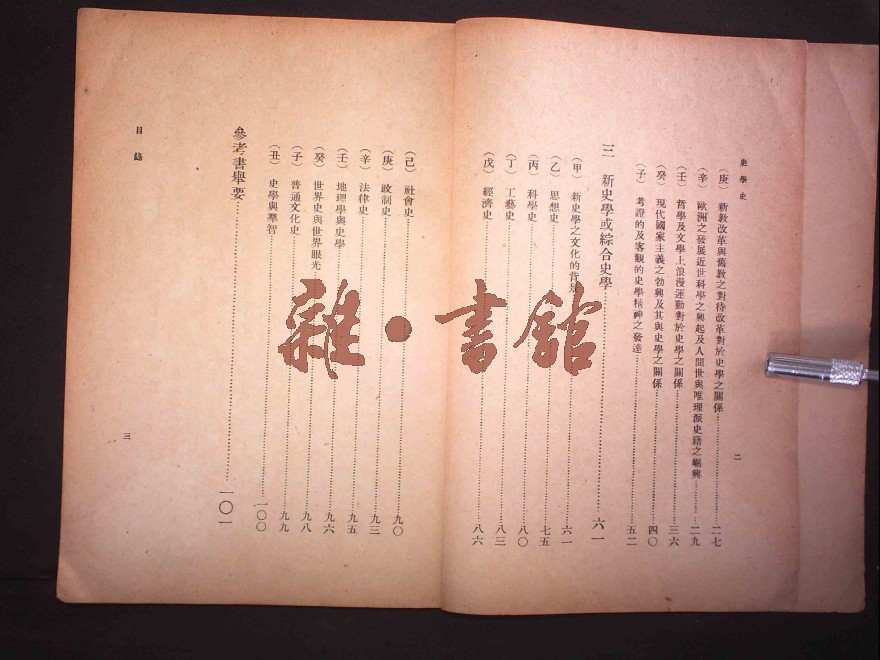 史學史
(庚) 新教改革與舊教之對待改革對於史學之關係……二七
(辛) 歐洲之發展近世科學之興起及人間世與唯理派史籍之崛興……二九
(壬) 哲學及文學上浪漫運動對於史學之關係……三六
(癸) 現代國家主義之勃興及其與史學之關係……四〇
(子) 考證的及客觀的史學精神之發達……五二
三 新史學或綜合史學……六一
(甲) 新史學之文化的背景……六一
(乙) 思想史……七五
(丙) 科學史……八〇
(丁) 工藝史……八三
(戊) 經濟史……八六
二
(己) 社會史……九〇
(庚) 政制史……九三
(辛) 法律史……九五
(壬) 地理學與史學……九六
(癸) 世界史與世界眼光……九八
(子) 普通文化史……九九
(丑) 史學與羣智……一〇〇
參考書舉要……一〇一
目錄
三
雜•書館